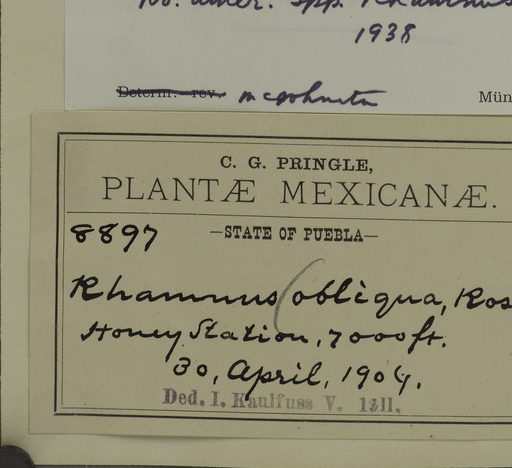 No. Amer. spp. Rhamnus
1938
Determ. rev. M C Johnston
Mün
C. G. PRINGLE,
PLANTÆ MEXICANÆ.
8897 —STATE OF PUEBLA—
Rhamnus (obliqua, Ros
Honey Station, 7000 ft.
30, April, 1904.
Ded. I. Kaulfuss V. 1911.